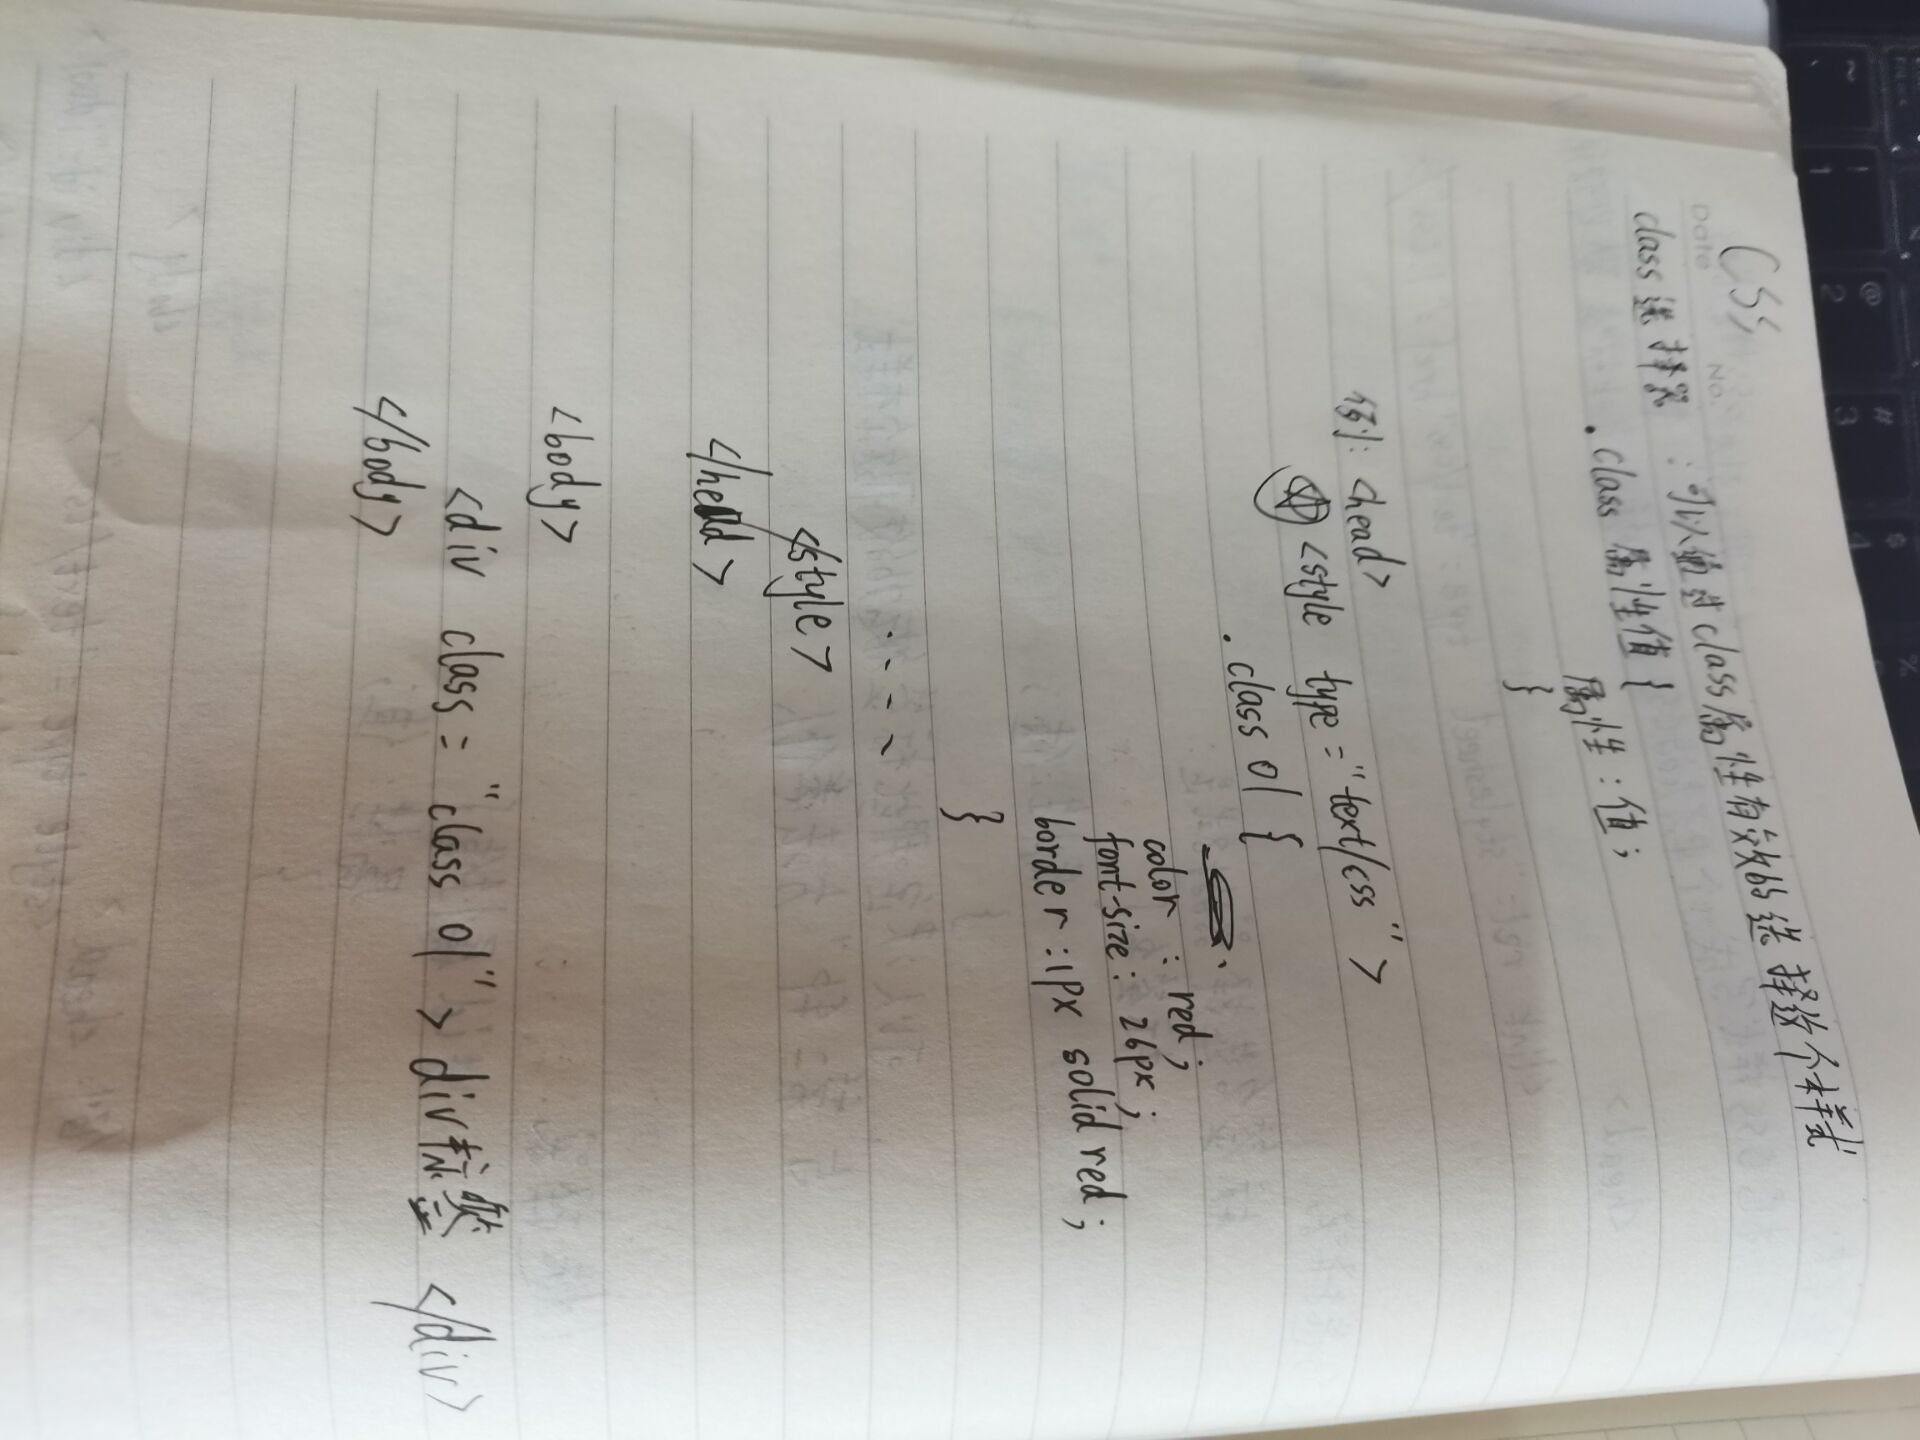 CSS
Date No.
class选择器：可以通过class属性有效的选择这个样式
.class属性值{
属性：值；
}
例：<head>
<style type="text/css">
.class 01 {
color : red;
font-size : 26px;
border : 1px solid red;
}
</style>
</head>
<body>
<div class = "class 01" > div标签 </div>
</body>